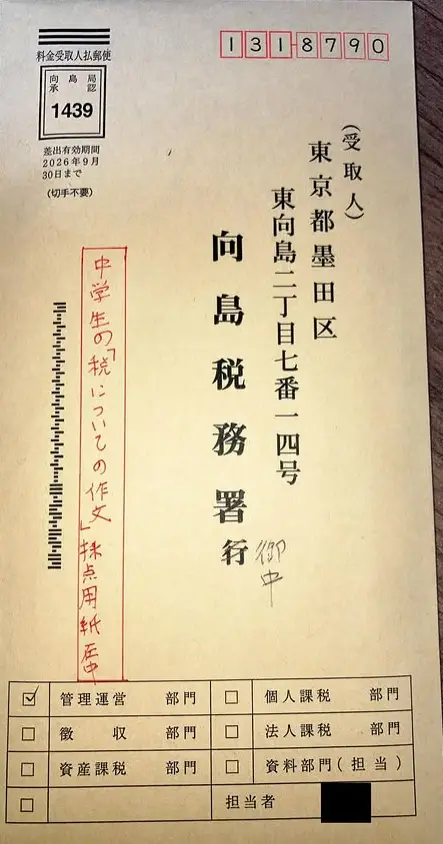 料金受取人払郵便
向島局
承認
1439
差出有効期間
2026年9月
30日まで
(切手不要)
1318790
(受取人)
東京都墨田区
東向島二丁目七番一四号
向島税務署行
御中
中学生の「税についての作文」採点用紙在中
管理運営 部門
個人課税 部門
徴収 部門
法人課税 部門
資産課税 部門
資料部門(担当)
担当者